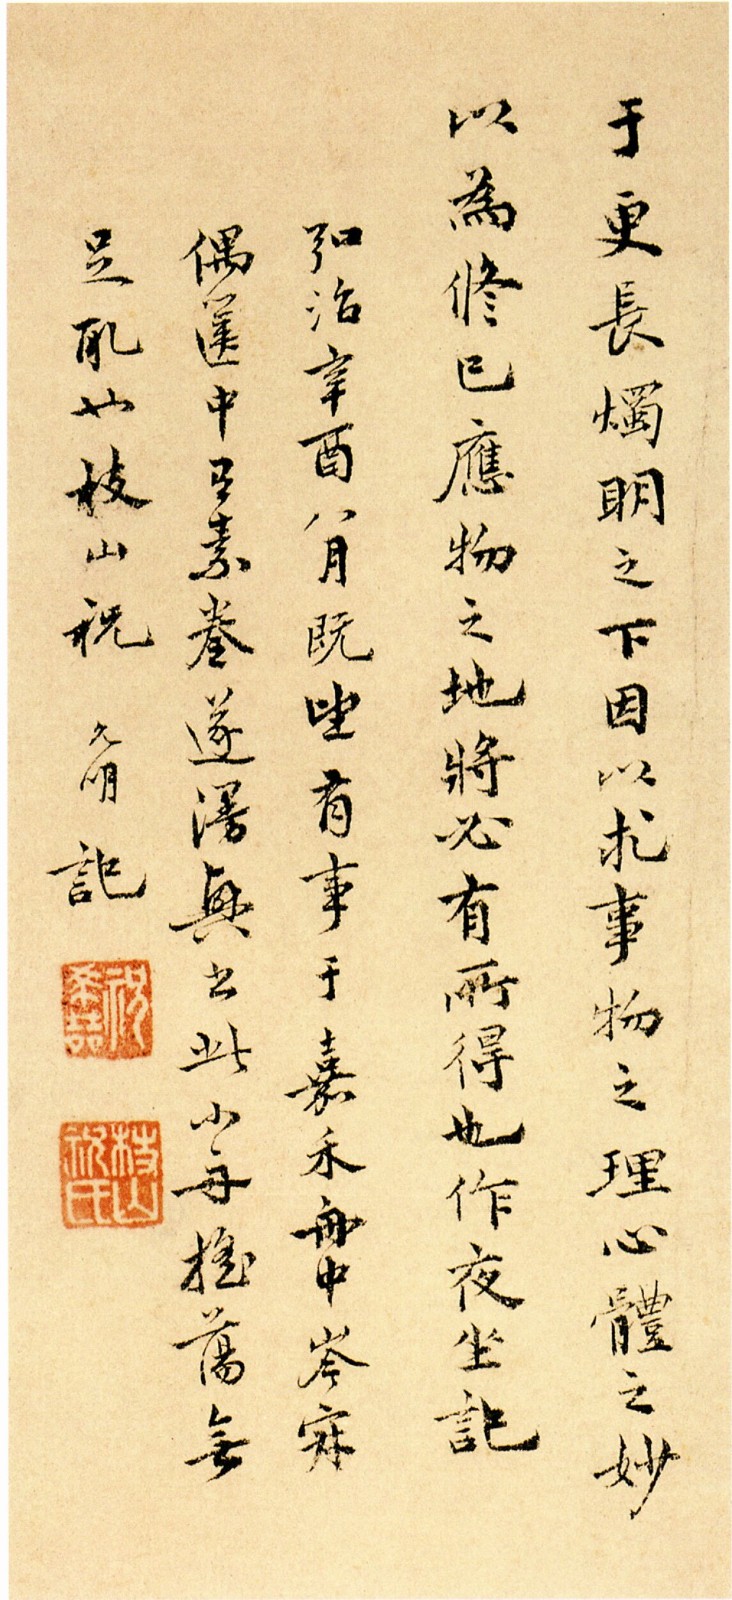 于更長燭明之下因以求事物之理心體之妙
以為修已應物之地將必有所得也作夜坐記
弘治辛酉八月既望有事于嘉禾舟中岑寂
偶篋中有素卷遂漫興書此小舟搖蕩無
足觀也枝山祝允明記
祝希哲
枝山祝氏